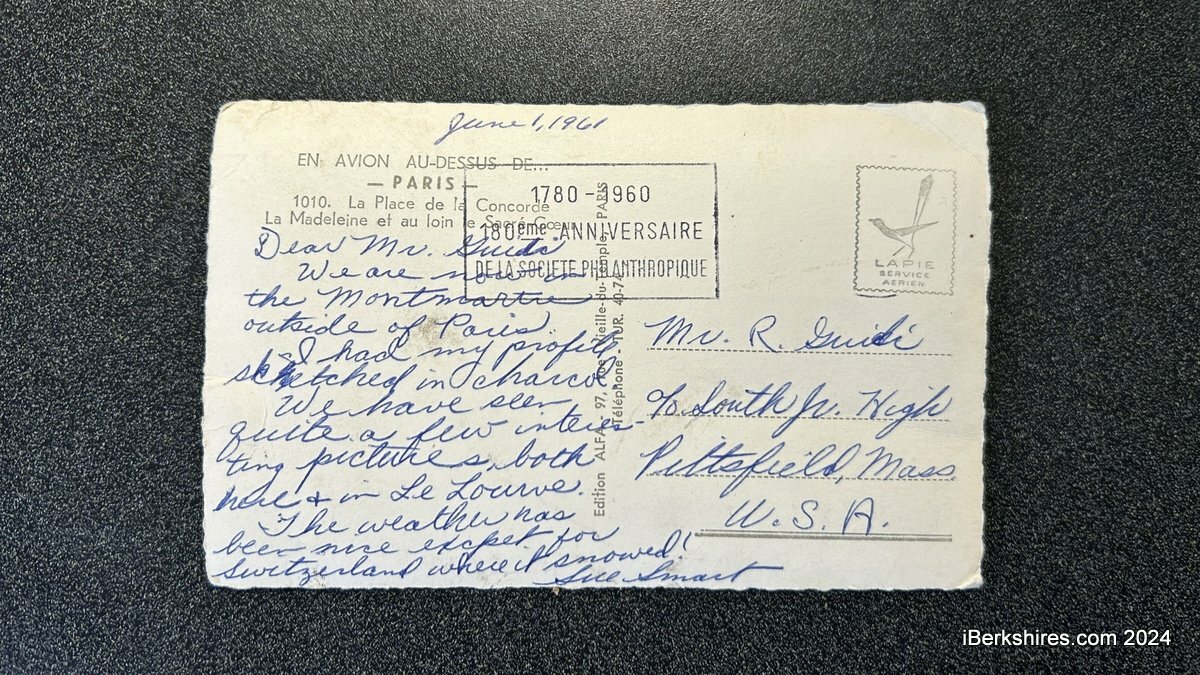 June 1, 1961
EN AVION AU-DESSUS DE...
— PARIS —
1010. La Place de la Concorde
La Madeleine et au loin le Sacré-Cœur
1780 - 1960
180ème ANNIVERSAIRE
DE LA SOCIETE PHILANTHROPIQUE
LAPIE
SERVICE
AERIEN
Dear Mr. Guidi
We are now in
the Montmartre
outside of Paris.
I had my profile
sketched in charcol.
We have seen
quite a few interes-
ting pictures, both
here & in Le Lourve.
The weather has
been nice excpet for
Switzerland where it snowed!
Sue Smart
Edition ALFA - 97, Vieille-du-Temple, PARIS
Téléphone - TUR. 40-7
Mr. R. Guidi
c/o South Jr. High
Pittsfield, Mass.
U.S.A.
iBerkshires.com 2024